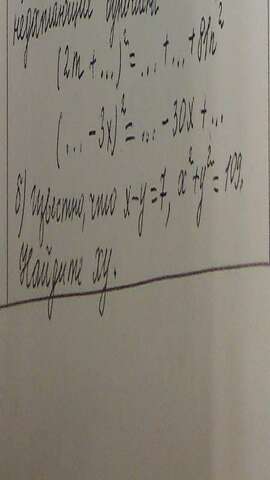 недостающие одночлены
(2m + ...)² = ... + ... + 81n²
(... - 3x)² = ... - 30x + ...
б) Известно, что x-y=7, x²+y²=109.
Найдите xy.